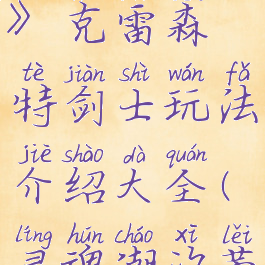 》克雷森
tè jiàn shì wán fǎ
特剑士玩法
jiè shào dà quán
介绍大全(
líng hún cháo xī lěi
灵魂潮汐蕾